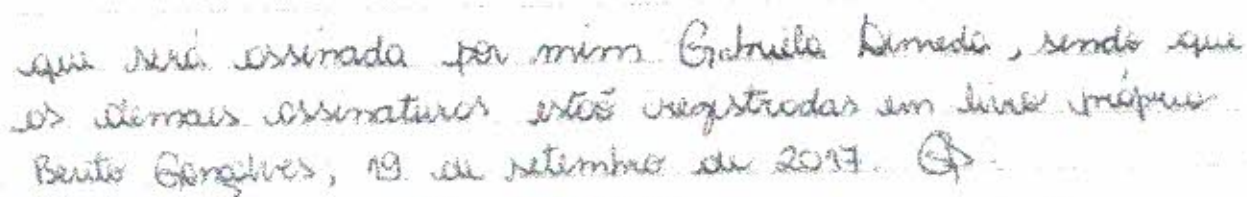 que será assinada por mim Gabriela Dimedo, sendo que
as demais assinaturas estão registradas em livro próprio
Bento Gonçalves, 19 de setembro de 2017.